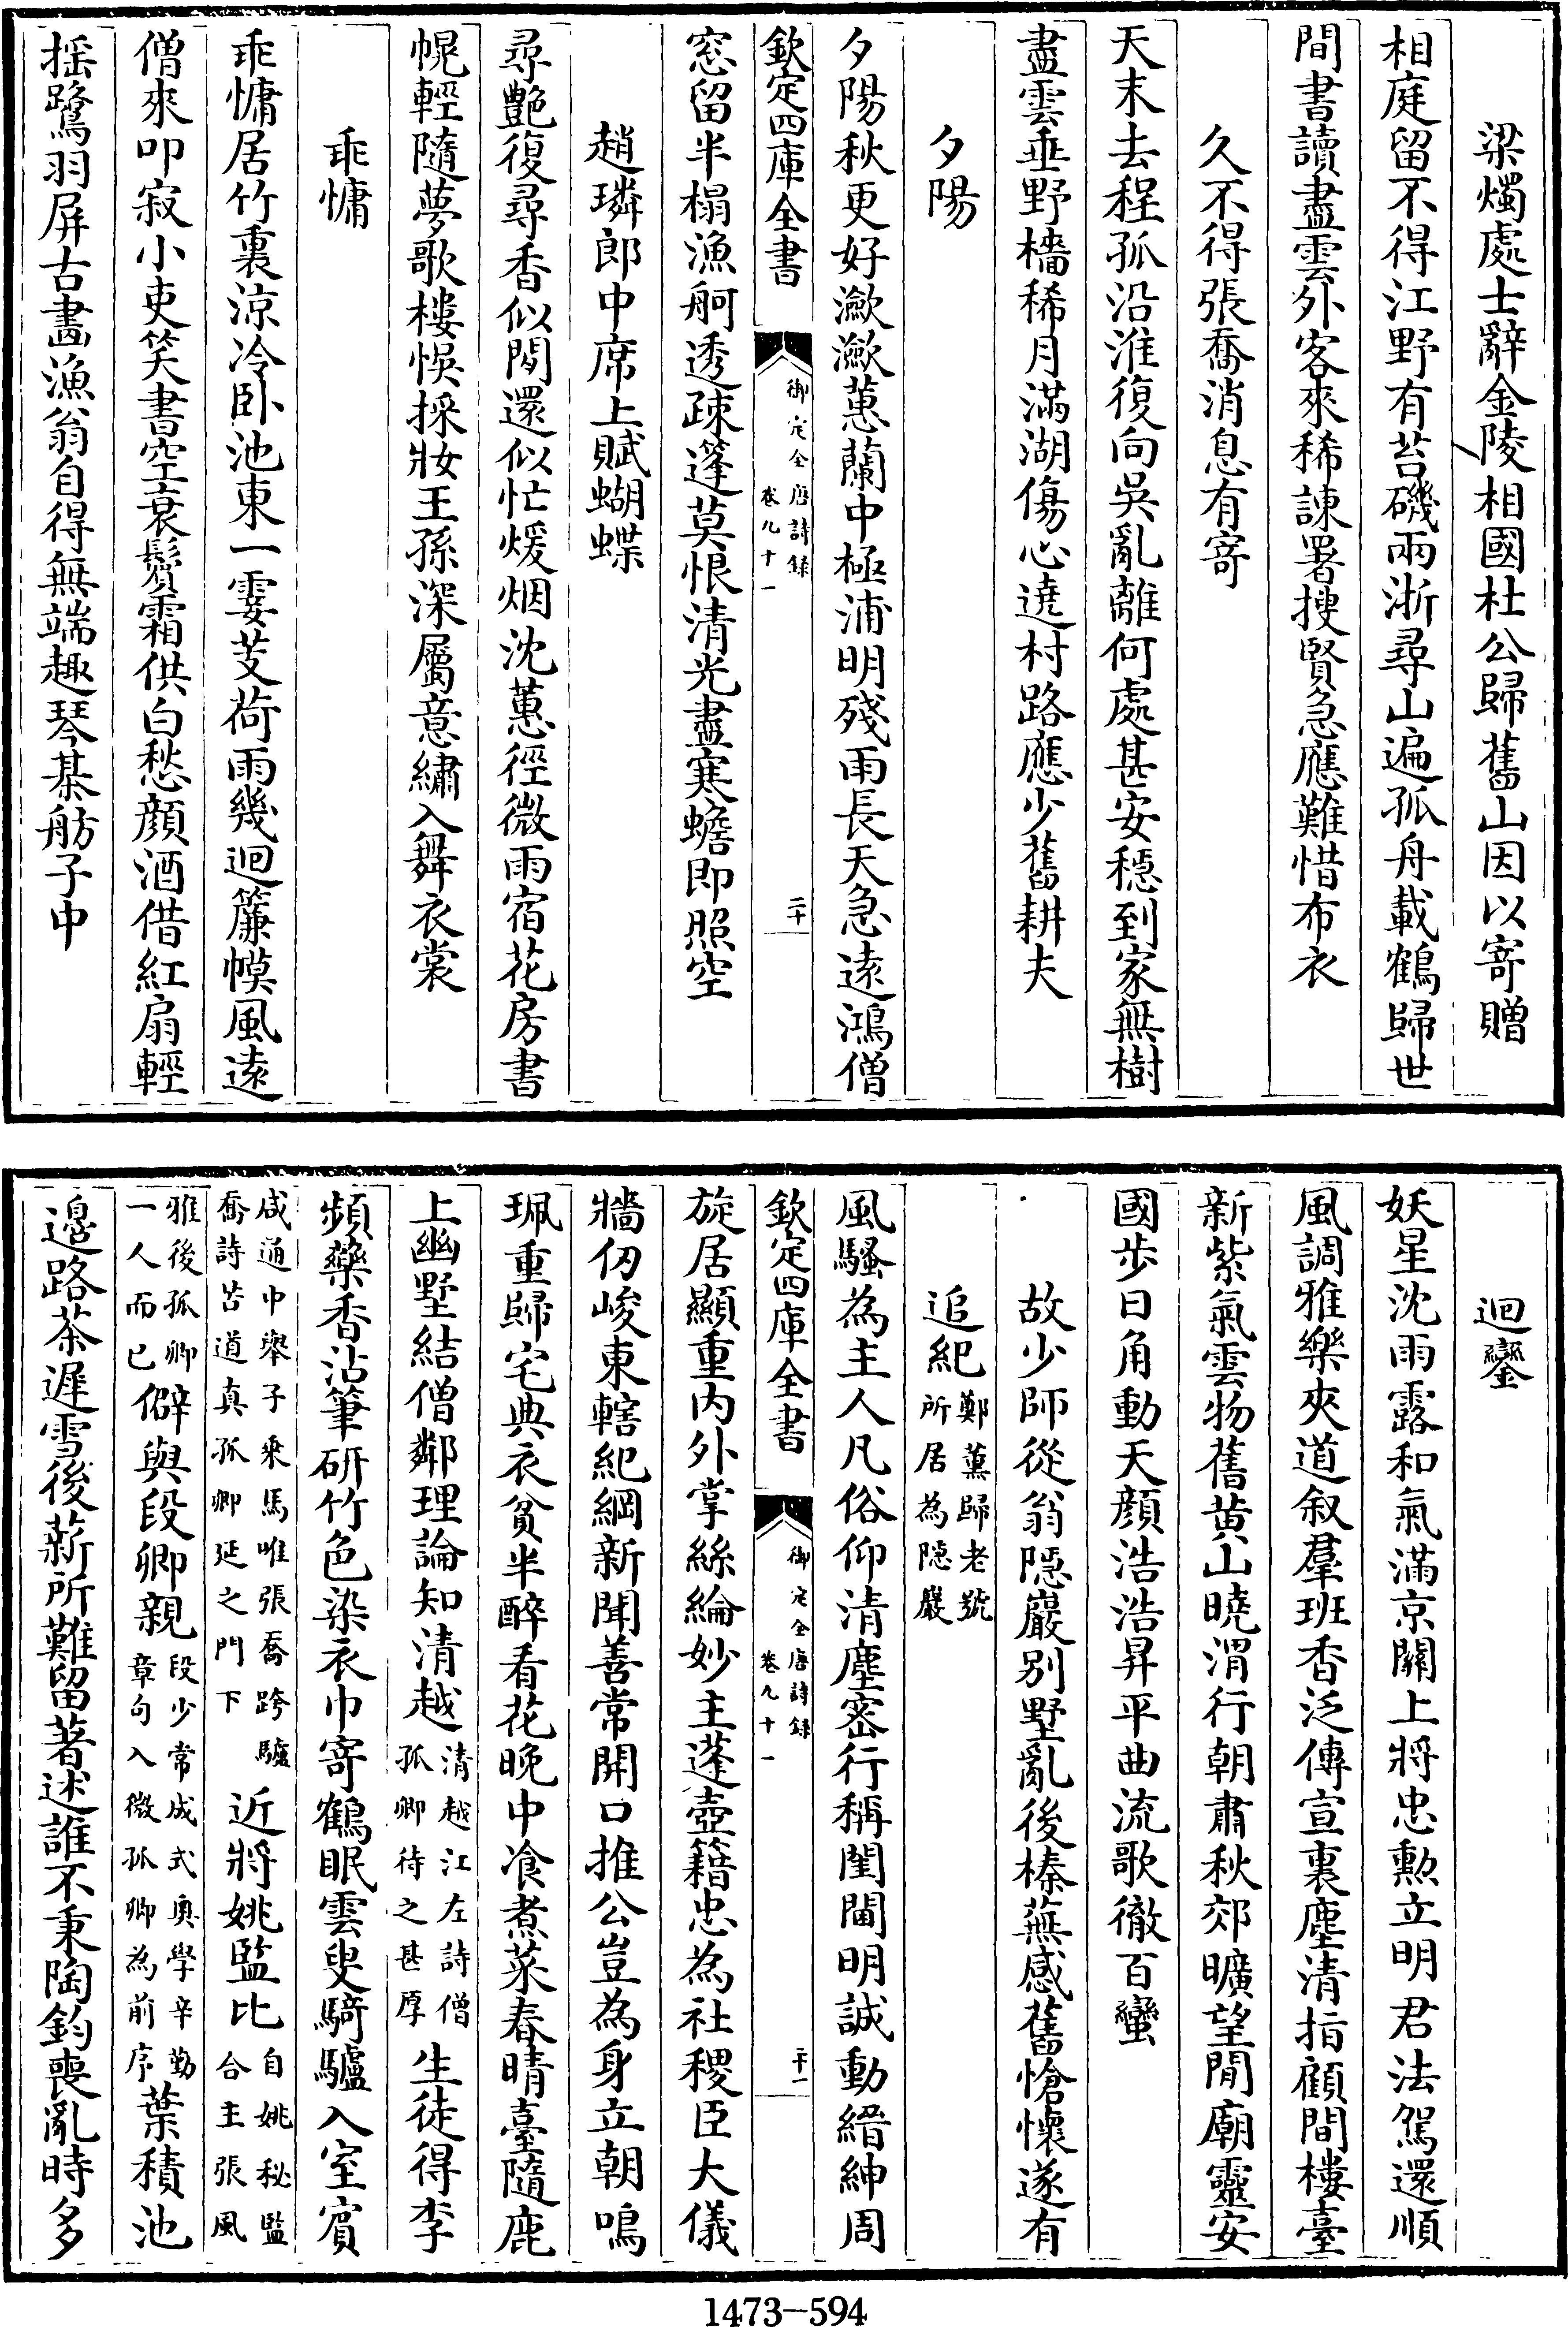 梁燭處士辭金陵相國杜公歸舊山因以寄贈
相庭留不得江野有苔磯兩浙尋山遍孤舟載鶴歸世
間書讀盡雲外客來稀諫署搜賢急應難惜布衣
久不得張喬消息有寄
天末去程孤沿淮復向吳亂離何處甚安穩到家無樹
盡雲垂野檣稀月滿湖傷心遶村路應少舊耕夫
夕陽
夕陽秋更好瀲瀲蕙蘭中極浦明殘雨長天急遠鴻僧
欽定四庫全書
御定全唐詩錄
卷九十一
二十
窓留半榻漁舸透疎篷莫恨清光盡寒蟾即照空
趙璘郎中席上賦蝴蝶
尋艷復尋香似閒還似忙煖烟沈蕙徑微雨宿花房書
幌輕隨夢歌樓悞採妝王孫深屬意繡入舞衣裳
乖慵
乖慵居竹裏涼冷卧池東一霎芰荷雨幾迴簾幙風遠
僧來叩寂小吏笑書空衰鬢霜供白愁顏酒借紅扇輕
揺鷺羽屏古畫漁翁自得無端趣琴棊舫子中
迴鑾
妖星沈雨露和氣滿京關上將忠勲立明君法駕還順
風調雅樂夾道叙羣班香泛傳宣裏塵清指顧間樓臺
新紫氣雲物舊黄山曉渭行朝肅秋郊曠望閒廟靈安
國步日角動天顏浩浩昇平曲流歌徹百蠻
故少師從翁隠巖别墅亂後榛蕪感舊愴懷遂有
追紀鄭薰歸老號
所居為隠巖
風騷為主人凡俗仰清塵密行稱閨閫明誠動縉紳周
欽定四庫全書
御定全唐詩錄
卷九十一
二十一
旋居顯重内外掌絲綸妙主蓬壺籍忠為社稷臣大儀
牆仞峻東轄紀綱新聞善常開口推公豈為身立朝鳴
珮重歸宅典衣貧半醉看花晚中飡煮菜春晴臺隨鹿
上幽墅結僧鄰理論知清越清越江左詩僧
孤卿待之甚厚生徒得李
頻藥香沾筆硏竹色染衣巾寄鶴眠雲叟騎驢入室賓
咸通中舉子乘馬唯張喬跨驢
喬詩苦道真孤卿延之門下近將姚監比自姚秘監
合主張風
雅後孤卿
一人而已僻與段卿親段少常成式奥學辛勤
章句入微孤卿為前序葉積池
邉路茶遲雪後薪所難留著述誰不秉陶鈞喪亂時多
1473-594